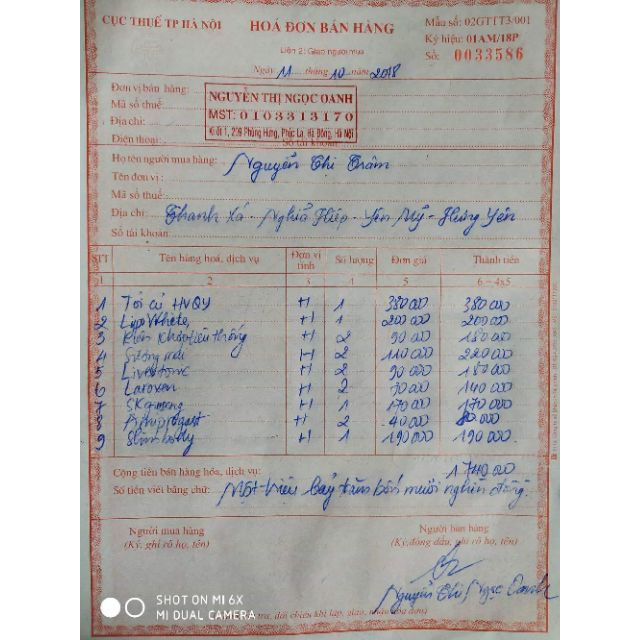 CỤC THUẾ TP HÀ NỘI
HOÁ ĐƠN BÁN HÀNG
Mẫu số: 02GTTT3/001
Liên 2: Giao người mua
Ký hiệu: 01AM/18P
Số: 0033586
Ngày 11 tháng 10 năm 2018
Đơn vị bán hàng:
NGUYỄN THỊ NGỌC OANH
Mã số thuế:
MST: 0103313170
Địa chỉ:
Ki ốt 1, 209 Phùng Hưng, Phúc La, Hà Đông, Hà Nội
Điện thoại: Số tài khoản:
Họ tên người mua hàng: Nguyễn Thị Trâm
Tên đơn vị:
Mã số thuế:
Địa chỉ: Thanh Xá - Nghĩa Hiệp - Yên Mỹ - Hưng Yên
Số tài khoản:
STT Tên hàng hoá, dịch vụ Đơn vị tính Số lượng Đơn giá Thành tiền
1 2 3 4 5 6=4x5
1 Tỏi củ HVQY H 1 380 000 380 000
2 Lipo White H 1 200 000 200 000
3 Kiện khớp tiêu thống H 2 90 000 180 000
4 H 2 110 000 220 000
5 Livertonic H 2 90 000 180 000
6 Laroxen H 2 70 000 140 000
7 H 1 170 000 170 000
8 H 2 40 000 80 000
9 Slimbody H 1 190 000 190 000
Cộng tiền bán hàng hóa, dịch vụ: 1 740 000
Số tiền viết bằng chữ: Một triệu bảy trăm bốn mươi nghìn đồng.
Người mua hàng
Người bán hàng
(Ký, ghi rõ họ, tên)
(Ký, đóng dấu, ghi rõ họ, tên)
Nguyễn Thị Ngọc Oanh
SHOT ON MI 6X
MI DUAL CAMERA
tra, đối chiếu khi lập, giao, nhận hóa đơn)